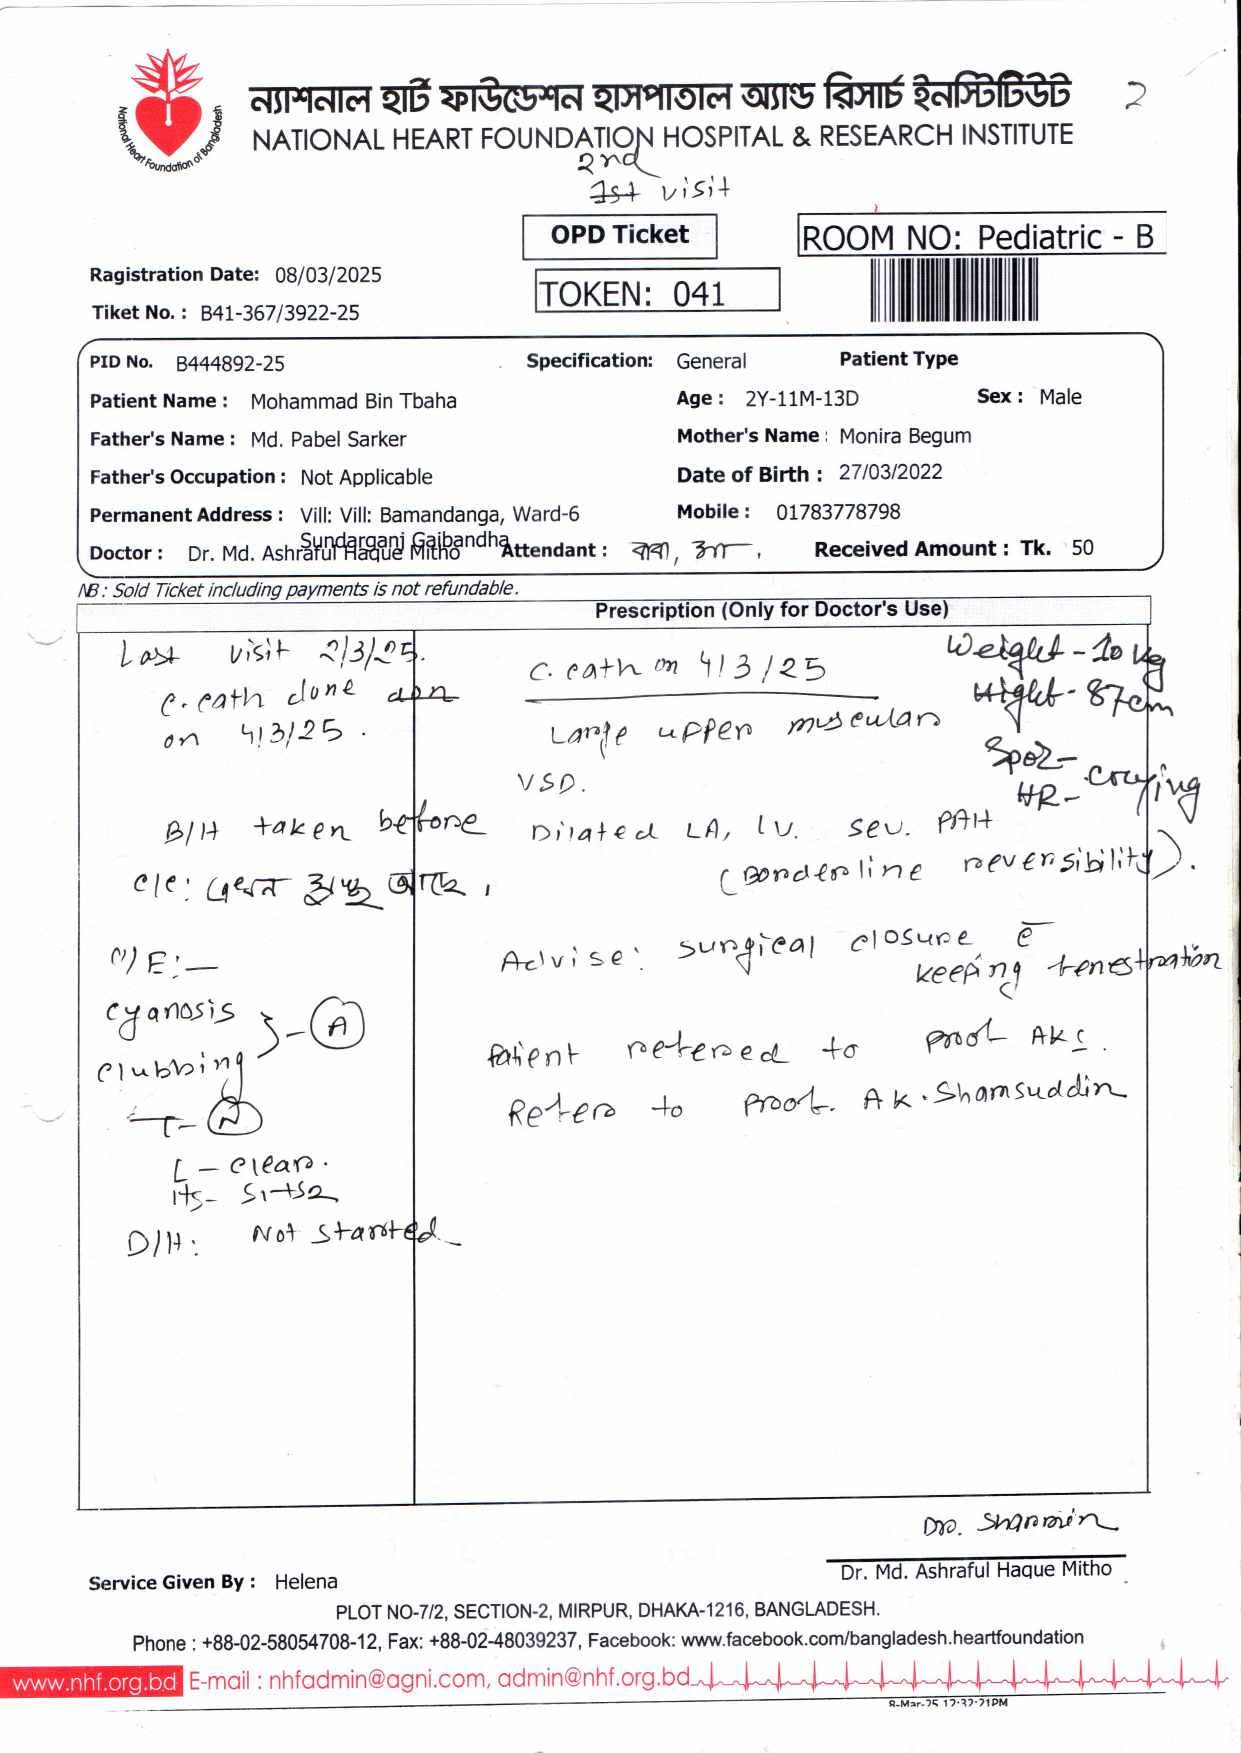 ন্যাশনাল হার্ট ফাউন্ডেশন হাসপাতাল অ্যান্ড রিসার্চ ইনস্টিটিউট
2
NATIONAL HEART FOUNDATION HOSPITAL & RESEARCH INSTITUTE
National Heart Foundation of Bangladesh
2nd
1st visit
OPD Ticket
ROOM NO: Pediatric - B
Ragistration Date: 08/03/2025
TOKEN: 041
Tiket No. : B41-367/3922-25
PID No. B444892-25 Specification: General Patient Type
Patient Name : Mohammad Bin Tbaha Age : 2Y-11M-13D Sex : Male
Father's Name : Md. Pabel Sarker Mother's Name : Monira Begum
Father's Occupation : Not Applicable Date of Birth : 27/03/2022
Permanent Address : Vill: Vill: Bamandanga, Ward-6 Mobile : 01783778798
Sundarganj Gaibandha
Doctor : Dr. Md. Ashraful Haque Mitho Attendant : বাবা, মা, Received Amount : Tk. 50
NB : Sold Ticket including payments is not refundable.
Prescription (Only for Doctor's Use)
Last visit 2/3/25.
C. cath done on
on 4/3/25.
B/H taken before
c/c: আছে।
O/E:-
cyanosis
clubbing } - A
T - N
L - clear.
Hs- S1+S2
D/H: Not started
Weight - 10 kg
Hight - 87cm
Spo2-
HR- crying
C. cath on 4/3/25
Large upper muscular
VSD.
Dilated LA, LV. sev. PAH
(Borderline reversibility).
Advise: surgical closure c̄
keeping fenestration
Patient refered to prof AKS.
Refer to Prof. AK. Shamsuddin
Dr. Sharmin
Dr. Md. Ashraful Haque Mitho
Service Given By : Helena
PLOT NO-7/2, SECTION-2, MIRPUR, DHAKA-1216, BANGLADESH.
Phone : +88-02-58054708-12, Fax: +88-02-48039237, Facebook: www.facebook.com/bangladesh.heartfoundation
www.nhf.org.bd E-mail : nhfadmin@agni.com, admin@nhf.org.bd
8-Mar-25 12:32:21PM